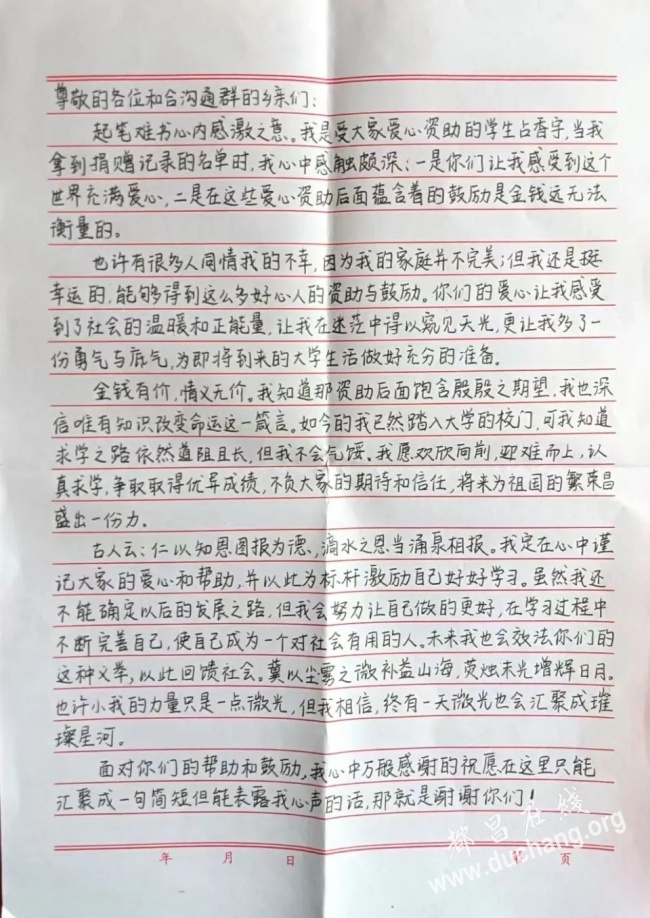 尊敬的各位和合沟通群的乡亲们：
起笔难书心内感激之意。我是受大家爱心资助的学生占香宇，当我
拿到捐赠记录的名单时，我心中感触颇深：一是你们让我感受到这个
世界充满爱心，二是在这些爱心资助后面蕴含着的鼓励是金钱远无法
衡量的。
也许有很多人同情我的不幸，因为我的家庭并不完美；但我还是挺
幸运的，能够得到这么多好心人的资助与鼓励。你们的爱心让我感受
到了社会的温暖和正能量，让我在迷茫中得以窥见天光，更让我多了一
份勇气与底气，为即将到来的大学生活做好充分的准备。
金钱有价，情义无价。我知道那资助后面饱含殷殷之期望，我也深
信唯有知识改变命运这一箴言。如今的我已然踏入大学的校门，可我知道
求学之路依然道阻且长，但我不会气馁。我愿欢欣向前，迎难而上，认
真求学，争取取得优异成绩，不负大家的期待和信任，将来为祖国的繁荣昌
盛出一份力。
古人云：仁以知恩图报为德，滴水之恩当涌泉相报。我定在心中谨
记大家的爱心和帮助，并以此为标杆激励自己好好学习。虽然我还
不能确定以后的发展之路，但我会努力让自己做的更好，在学习过程中
不断完善自己，使自己成为一个对社会有用的人。未来我也会效法你们的
这种义举，以此回馈社会。冀以尘雾之微补益山海，荧烛末光增辉日月。
也许小我的力量只是一点微光，但我相信，终有一天微光也会汇聚成璀
璨星河。
面对你们的帮助和鼓励，我心中万般感谢的祝愿在这里只能
汇聚成一句简短但能表露我心声的话，那就是谢谢你们！
年 月 日 第 页
都昌在线
www.duchang.org